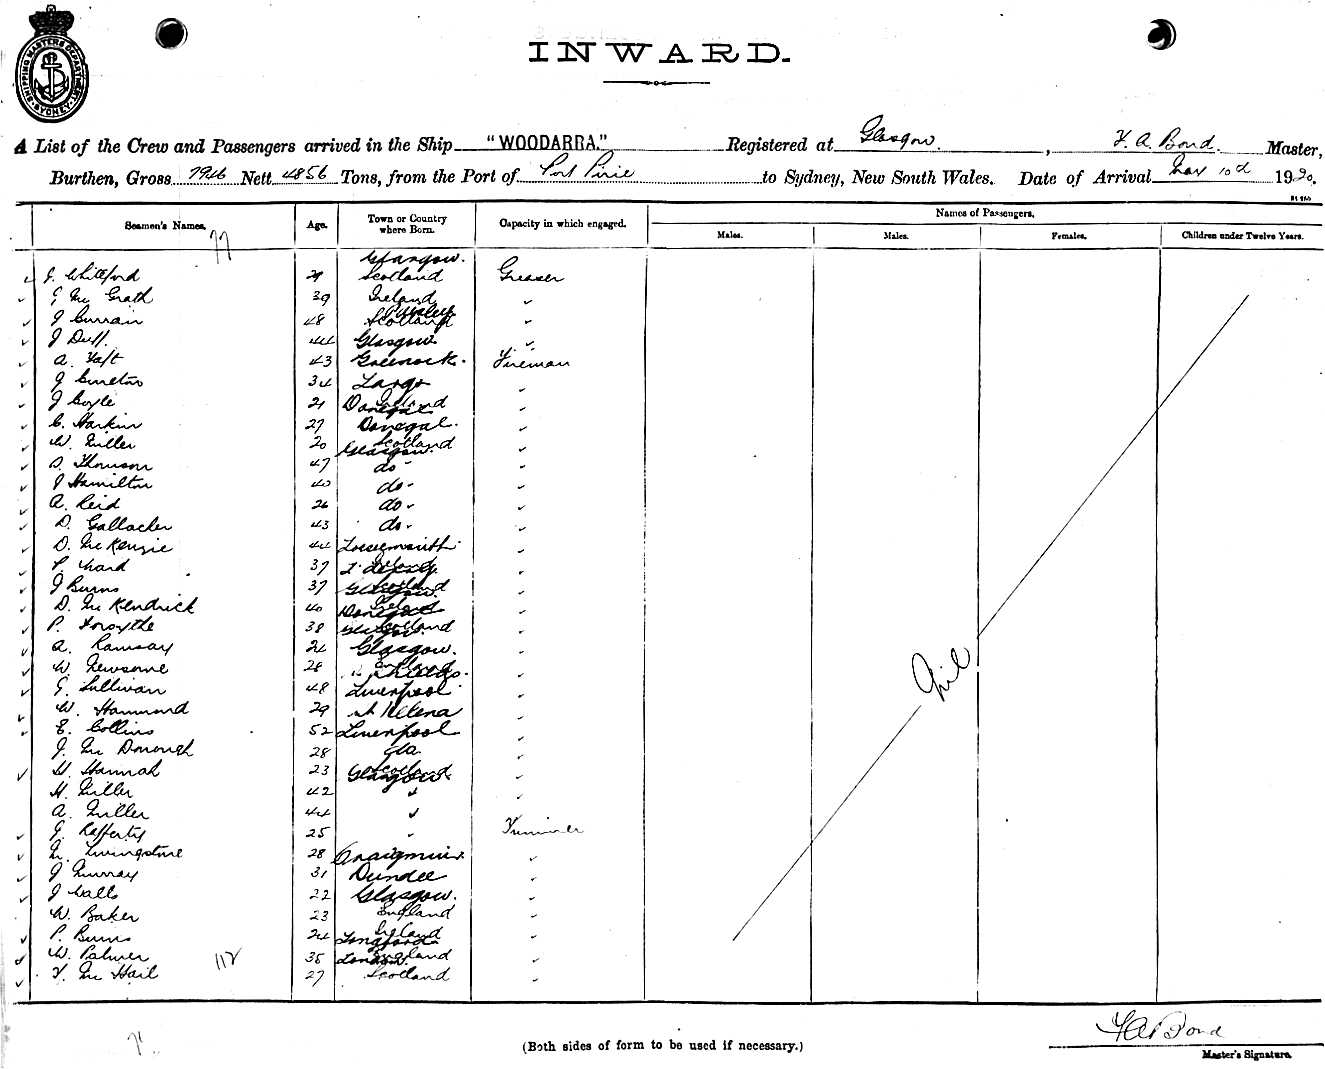 SHIPPING MASTERS DEPARTMENT SYDNEY
INWARD.
A List of the Crew and Passengers arrived in the Ship "WOODARRA." Registered at Glasgow. , F. A. Bond. Master,
Burthen, Gross 7946 Nett 4856 Tons, from the Port of Port Pirie to Sydney, New South Wales. Date of Arrival May 10th 1920.
Names of Passengers.
Seamen's Names. Age. Town or Country where Born. Capacity in which engaged. Males. Males. Females. Children under Twelve Years.
77
J. Whiteford Glasgow. Scotland Greaser
J. McGrath 39 Ireland "
J Curran 48 Paisley Scotland "
J Duff. 44 Glasgow "
A. Taft 43 Greenock. Fireman
J Cureton 34 Largs "
J Coyle 21 Donegal "
C. Harkin 27 Donegal. "
W. Miller 20 Scotland Glasgow. "
D. Thomson 47 do- "
J Hamilton 40 do- "
A. Reid 26 do- "
D. Gallacher 43 do- "
D. McKenzie 44 Lossiemouth "
P. Ward 37 "
J Burns 37 Scotland Glasgow "
D. McKendrick 40 Ireland Donegal "
P. Forsythe 38 Scotland Glasgow. "
A. Ramsay 24 Glasgow. "
W. Newsome 28 England Shields. "
J. Sullivan 48 Liverpool "
W. Hammond 29 St Helena "
E. Collins 52 Liverpool "
J. McDonough 28 Gla "
W. Hannah 23 Scotland Glasgow "
H. Miller 42 " "
A. Miller 44 "
J. Rafferty 25 " Trimmer
M. Livingstone 28 "
J Murray 31 Dundee "
J Walls 22 Glasgow. "
W. Baker 23 England "
P. Burns 24 Ireland Longford "
W. Palmer 35 England London. "
F. McHail 27 Scotland "
112
Nil
F A Bond
(Both sides of form to be used if necessary.)
Master's Signature.